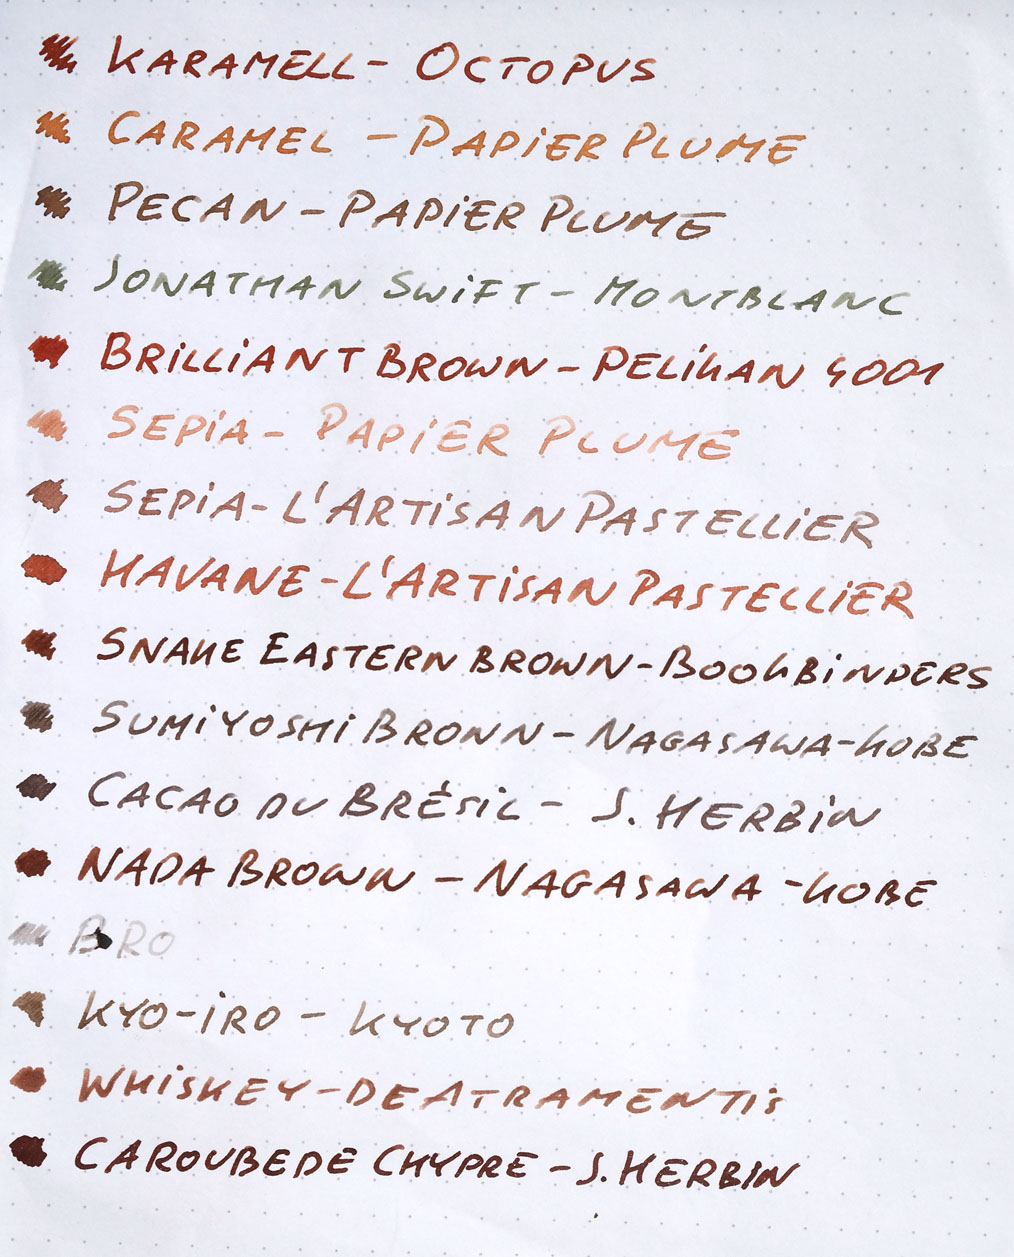 KARAMELL - OCTOPUS
CARAMEL - PAPiER PLUME
PECAN - PAPiER PLUME
JONATHAN SWiFT - MONTBLANC
BRiLLiANT BROWN - PELiKAN 4001
SEPiA - PAPiER PLUME
SEPiA - L'ARTiSAN PASTELLiER
HAVANE - L'ARTiSAN PASTELLiER
SNAKE EASTERN BROWN - BOOKBiNDERS
SUMiYOSHi BROWN - NAGASAWA - KOBE
CACAO DU BRÉSiL - J. HERBiN
NADA BROWN - NAGASAWA - KOBE
BRO
KYO-iRO - KYOTO
WHiSKEY - DE ATRAMENTiS
CAROUBE DE CHYPRE - J. HERBIN